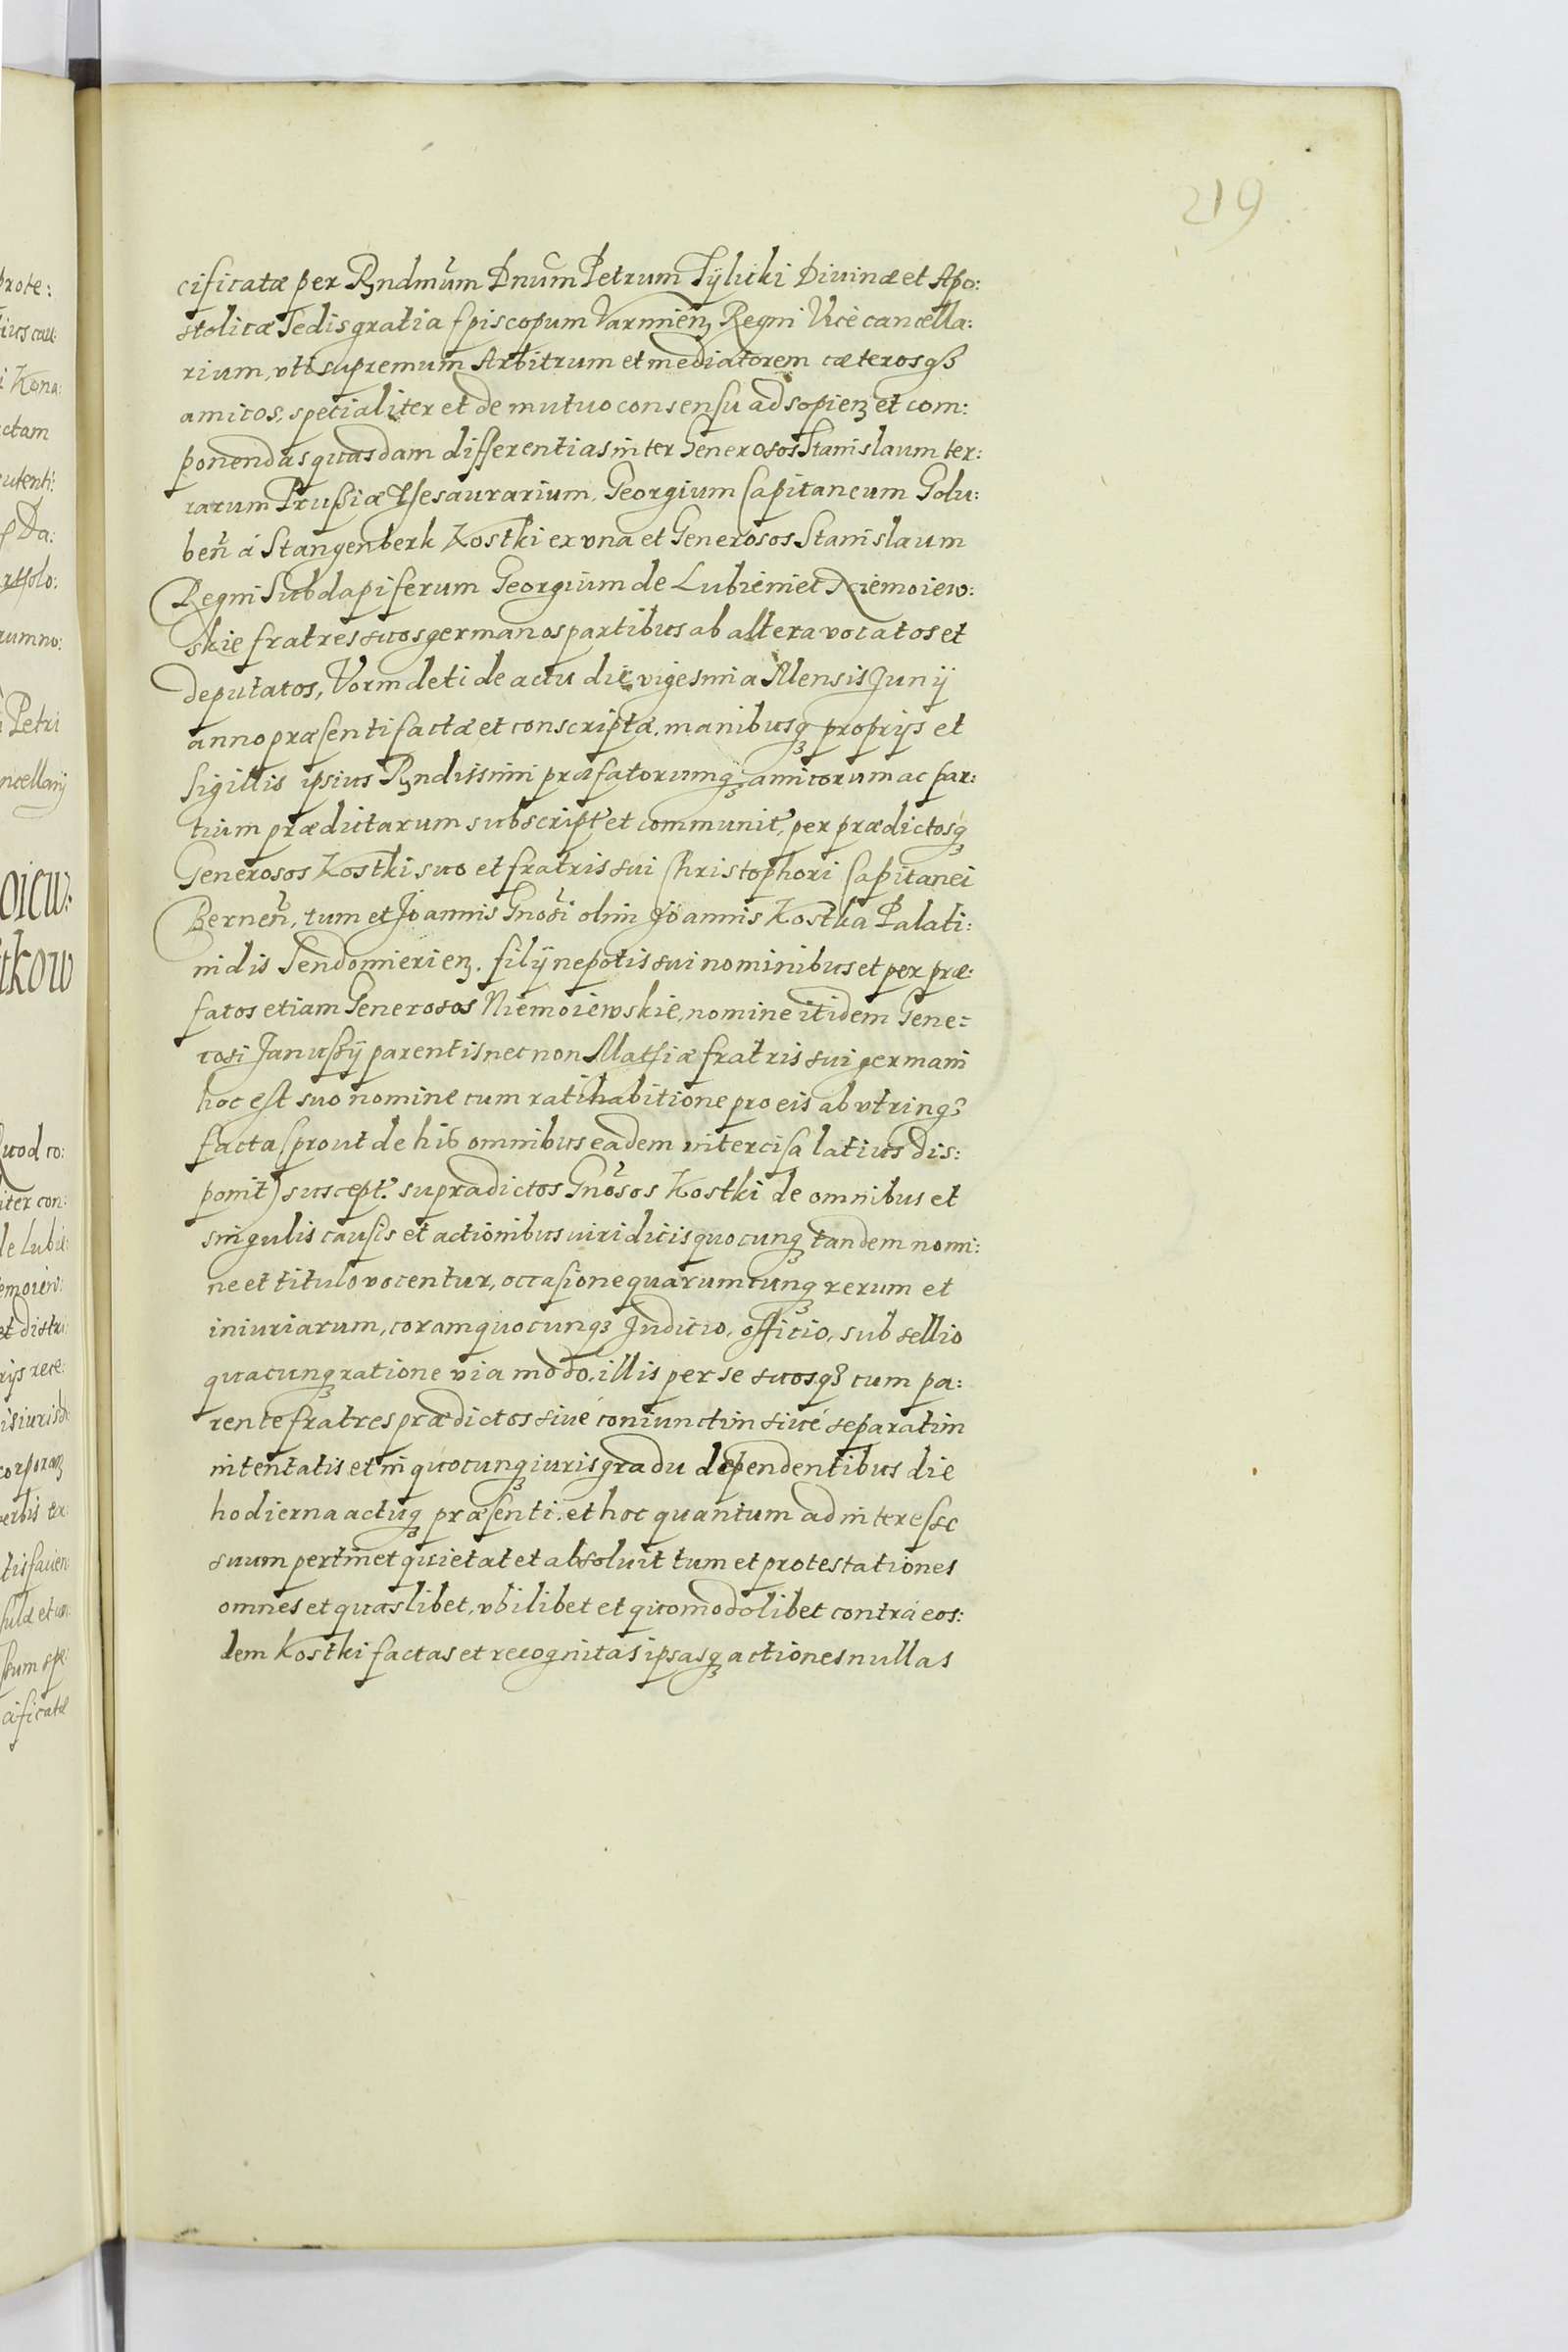 219
cificatæ per Rndmum Dnum Petrum Tÿlicki Diuinæ et Apo:
stolicæ Sedis gratia Episcopum Varmien Regni Vicècancella:
rium, vti supremum Arbitrum et mediatorem cæterosq3
amicos, specialiter et de mutuo consensu ad sopien et com:
ponendas quasdam differentias inter Generosos Stanislaum ter:
rarum Prussiæ Thesaurarium, Georgium Capitaneum Golu:
ben á Stangenberk Kostki ex vna et Generosos Stanislaum
Regni Subdapiferum Georgium de Lubienieć Niemoiew:
skie fratres suos germanos partibus ab altera vocatos et
deputatos, Vormdeti de actu die vigesima Mensis Junÿ
anno præsenti factæ et conscriptæ, manibusq proprijs et
sigillis ipsius Rndissimi præfatorumq amicorum ac par:
tium prædictarum subscript et communit, per prædictosq
Generosos Kostki suo et fratris sui Christophori Capitanei
Bernen, tum et Joannis Gnosi olim Joannis Kostka Palati:
nidis Sendomierien. filÿ nepotis sui nominibus et per præ:
fatos etiam Generosos Niemoiewskie, nomine itidem Gene:
rosi Janussÿ parentis necnon Mathiæ fratris sui germani
hoc est suo nomine cum ratihabitione pro eis ab vtrinq3
facta (prout de his omnibus eadem intercisa latius dis:
ponit) suscept. supradictos Gnosos Kostki de omnibus et
singulis causis et actionibus iuridicis quocunq tandem nomi:
ne et titulo vocentur, occasione quarumcunq rerum et
iniuriarum, coram quocunq3 Judicio, officio, subsellio
quacunq ratione via modo, illis per se suosq3 cum pa:
rente fratres prædictos siué coniunctim siué separatim
intentatis et in quocunq iuris gradu dependentibus die
hodierna actuq præsenti, et hoc quantum ad interesse
suum pertinet quietat et absoluit tum et protestationes
omnes et quaslibet, vbilibet et quomodolibet contrá eos:
dem Kostki factas et recognitas ipsasq actiones nullas